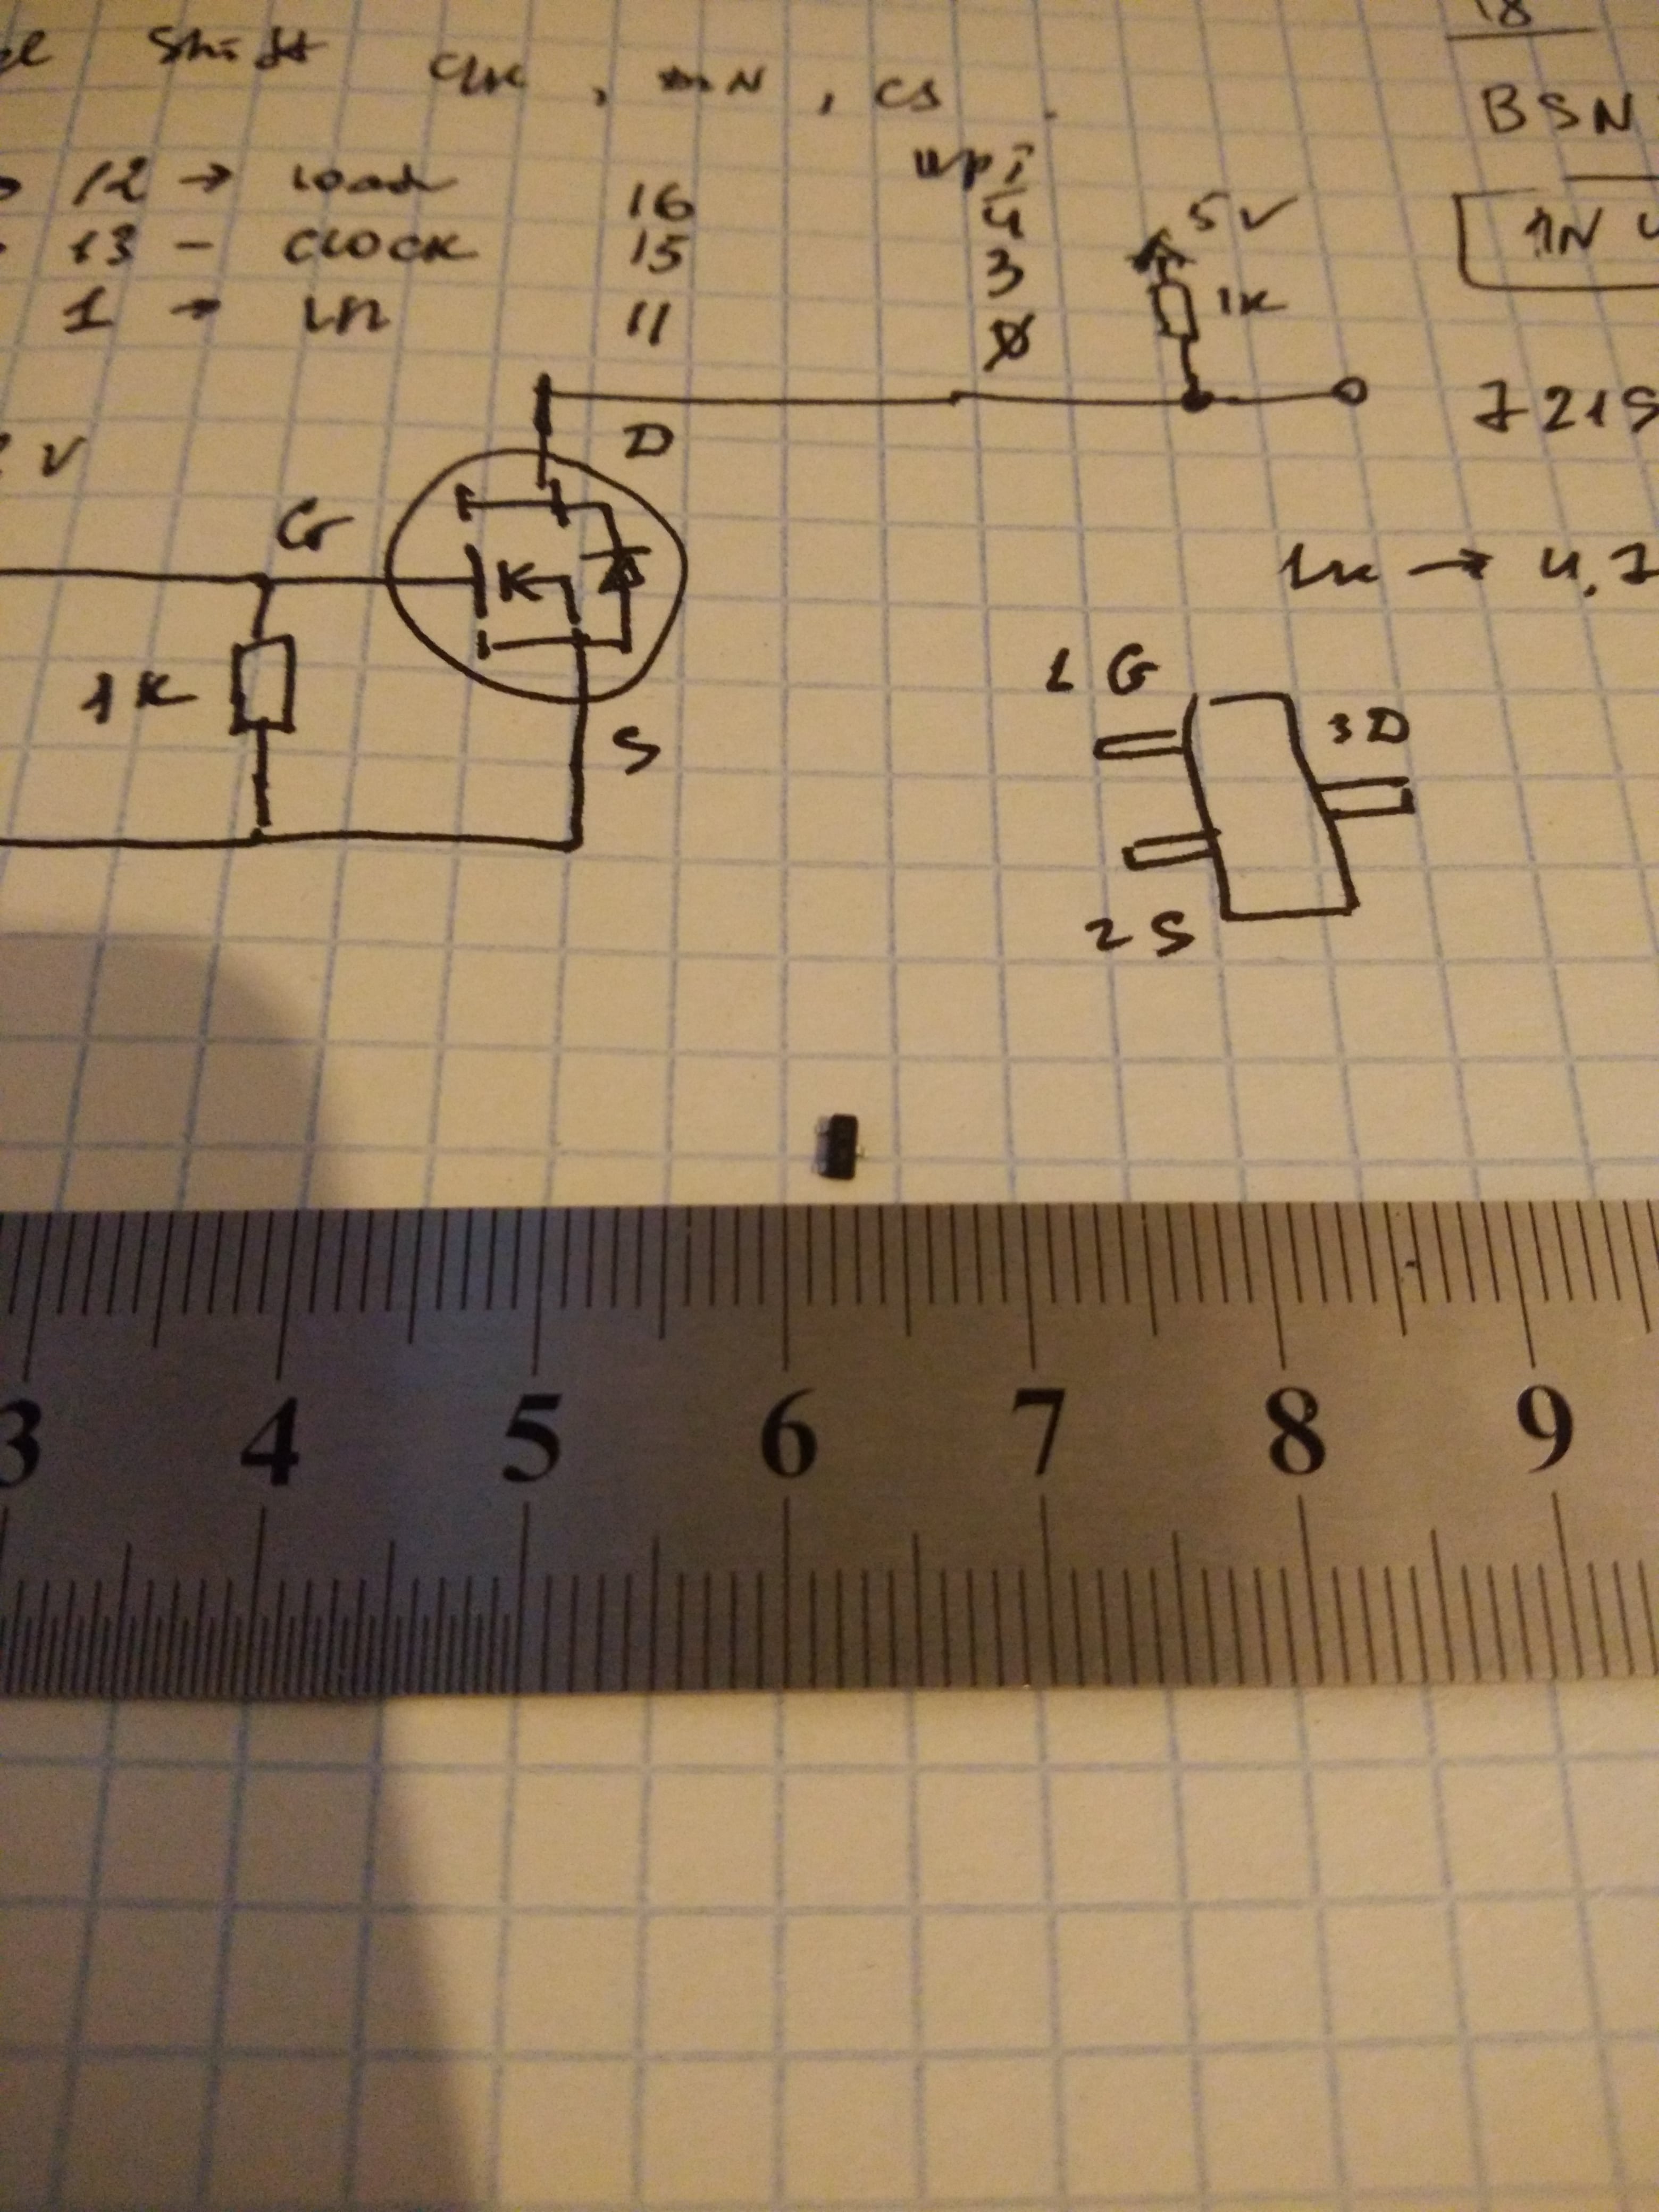 Shift CLK, IN, CS
18
BSN
12 → Load 16 4
wpi
13 - CLOCK 15 3
1 → IN 11 0
5V
1K
1N 4
D
7219
V
G
1K → 4,7
1K
S
1 G
3 D
2 S
3 4 5 6 7 8 9